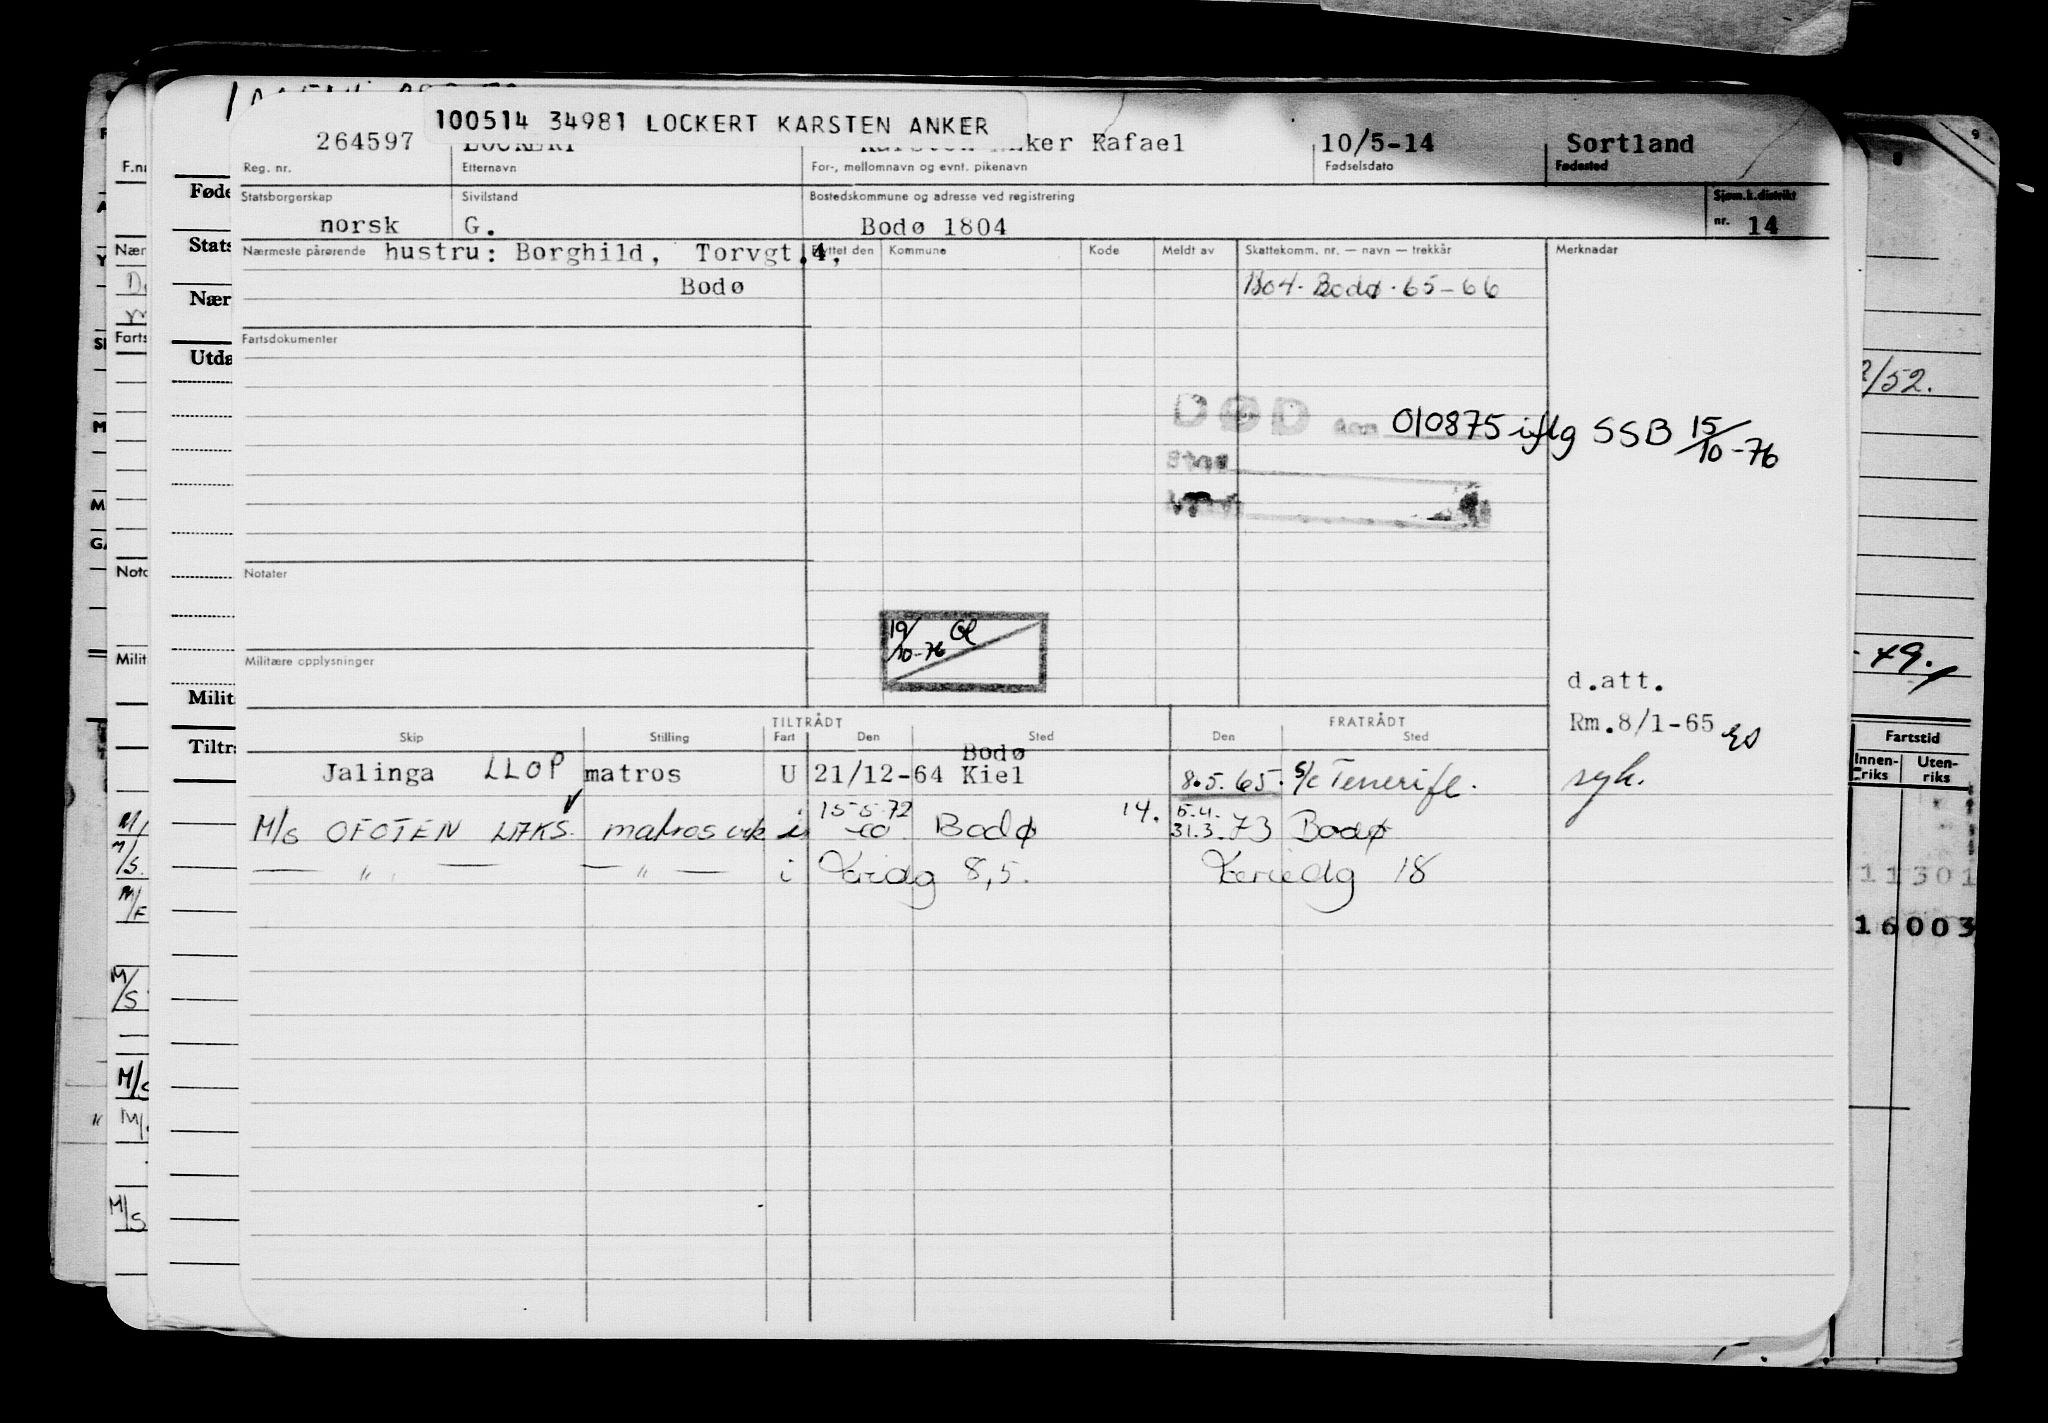 100514 34981 LOCKERT KARSTEN ANKER
264597 LOCKERT Karsten Anker Rafael 10/5-14 Sortland
Reg. nr. Etternavn For-, mellomnavn og evnt. pikenavn Fødselsdato Fødested
Statsborgerskap Sivilstand Bostedskommune og adresse ved registrering Sjøm.k.distrikt
norsk G. Bodø 1804 nr. 14
Nærmeste pårørende hustru: Borghild, Torvgt.4, Flyttet den Kommune Kode Meldt av Skattekomm. nr. — navn — trekkår Merknadar
Bodø 1804. Bodø. 65-66
Fartsdokumenter
DØD den 010875 iflg SSB 15/10-76
Sted
Notater
19/10-76
Militære opplysninger
d.att.
TILTRÅDT FRATRÅDT
Rm.8/1-65
Skip Stilling Fart Den Sted Den Sted
Bodø
Jalinga LLOP matros U 21/12-64 Kiel 8.5.65. s/c Tenerife. syk.
15-5-72 14. 5.4.
M/S OFOTEN LAKS. matros i Bodø 31.3.73 Bodø
— " — — " — i 8,5. 18
F.nr
Føde
Stats
Nær
Nær
Farts
Utda
Noto
Milit
Milit
Tiltr
M/S
M/S
M/S
M/S
2/52.
49.
Fartstid
Innenriks Utenriks
11301
16003
9